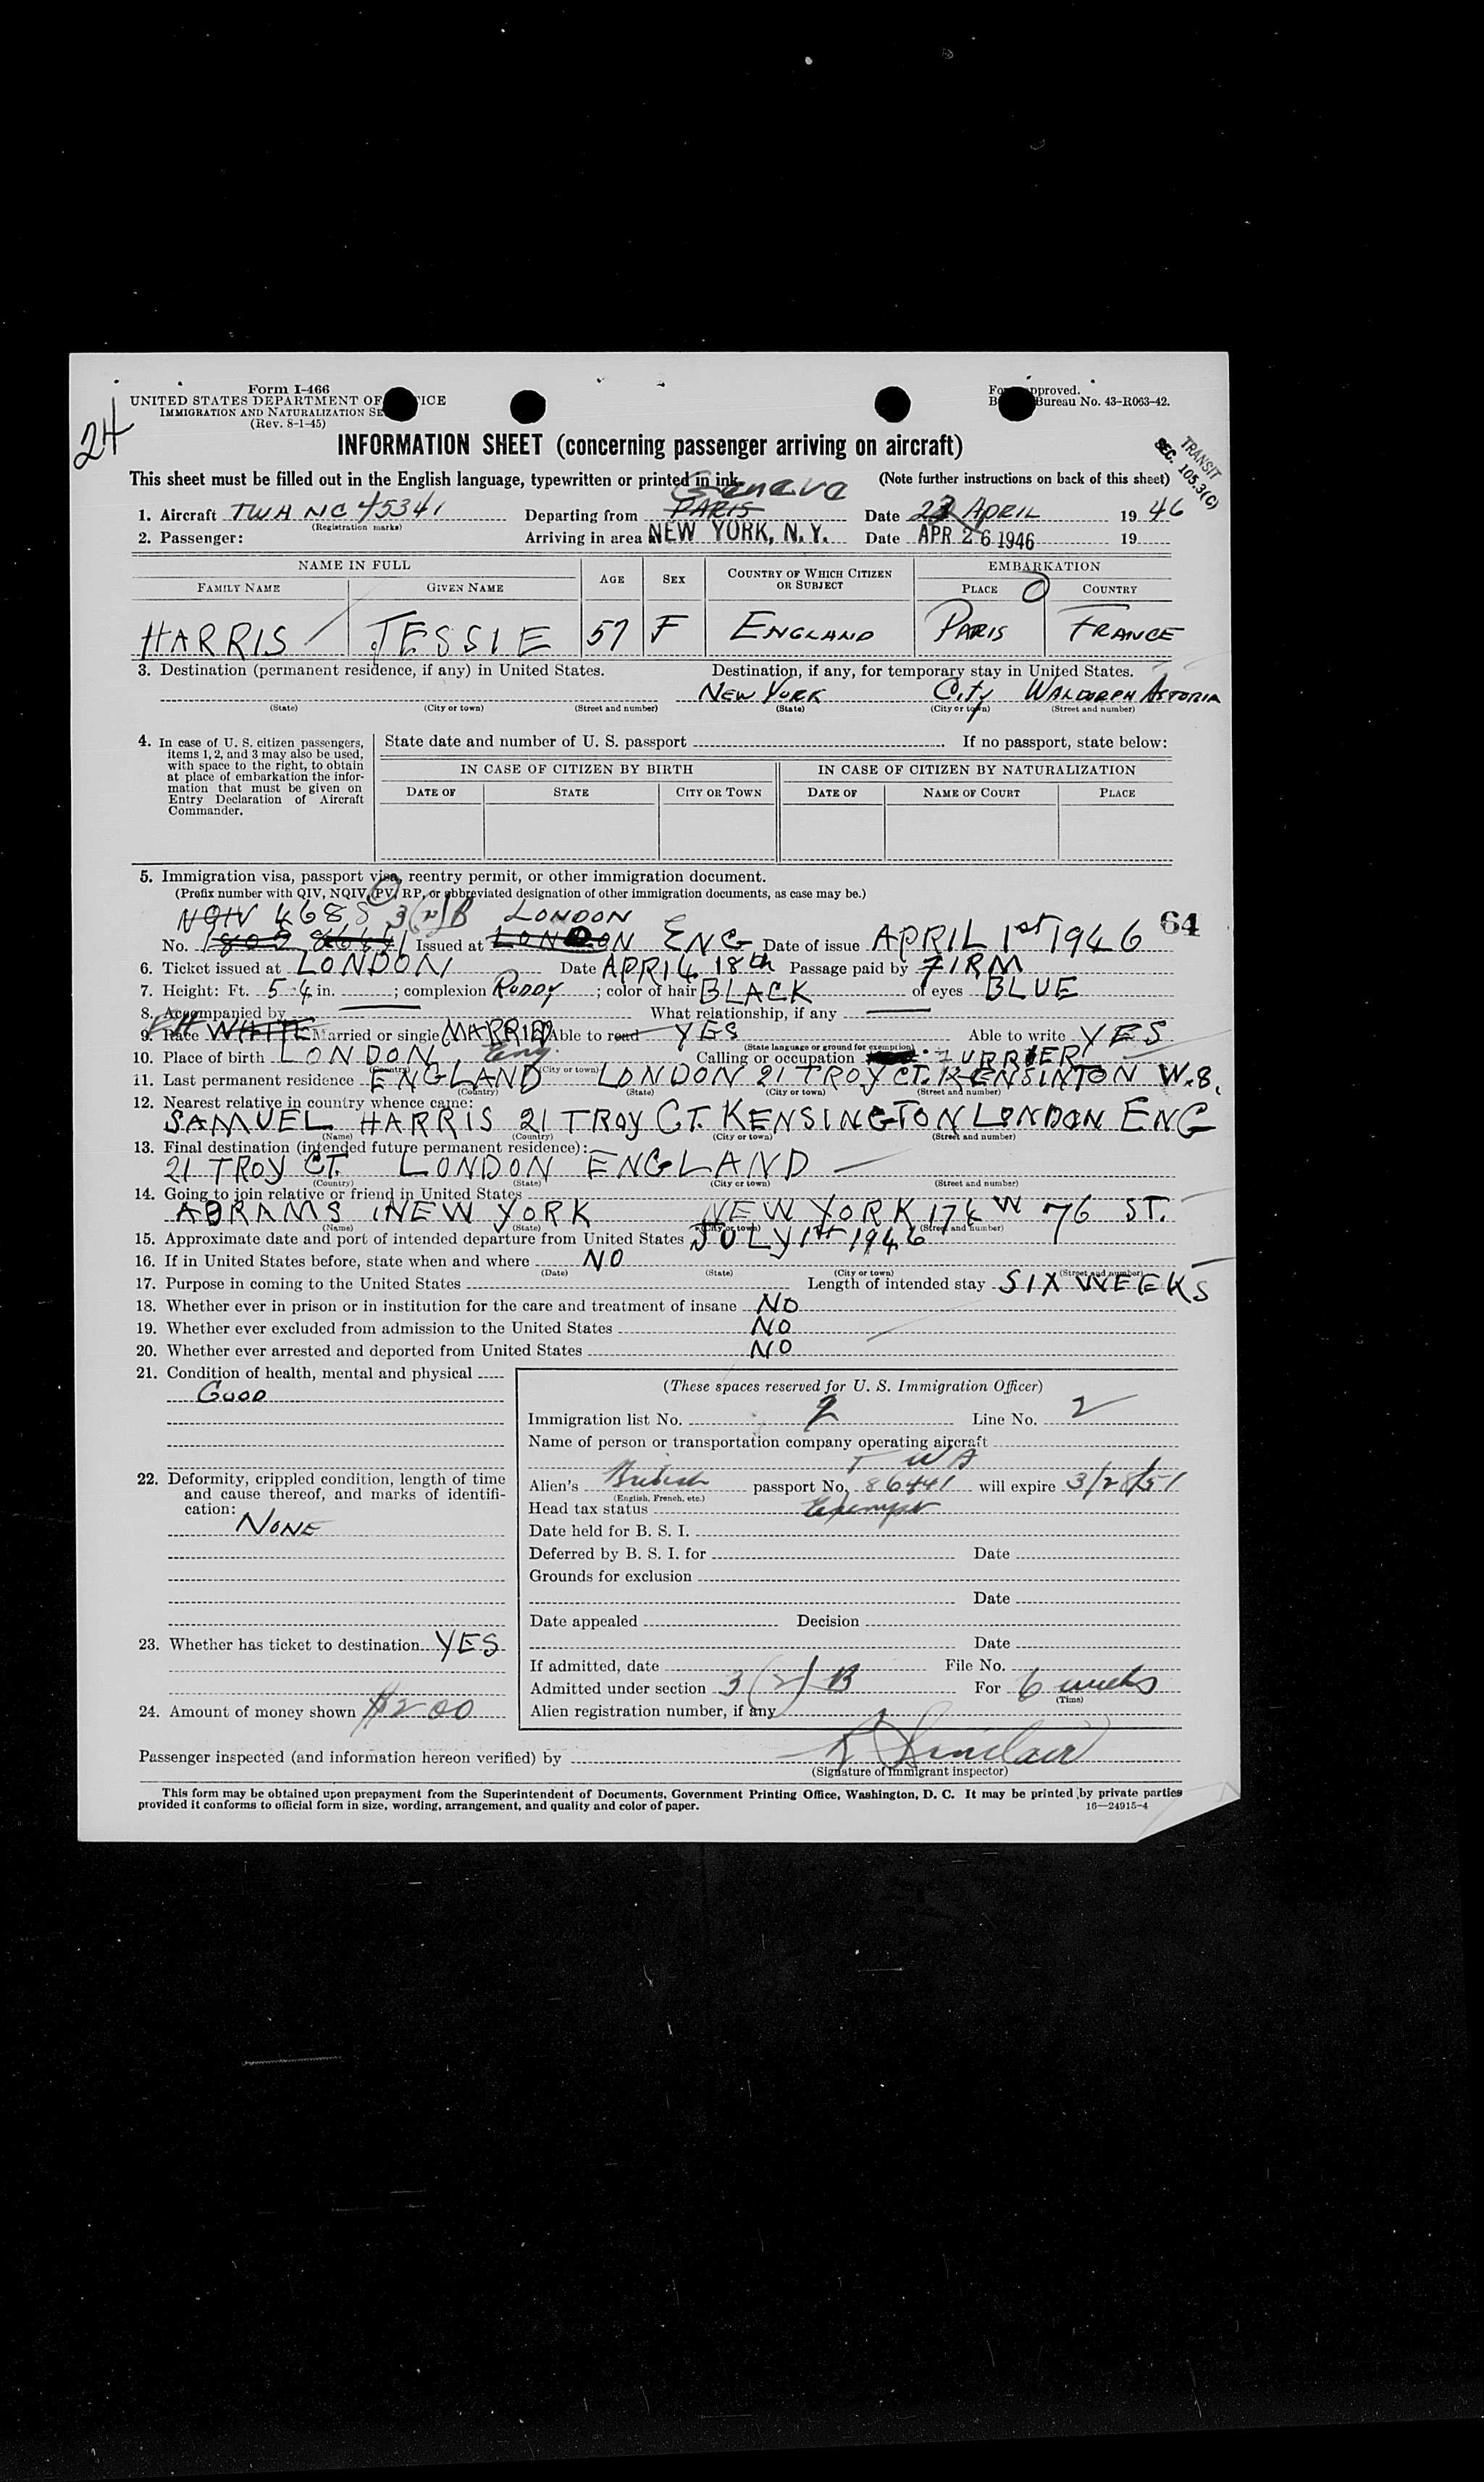 24
Form I-466
UNITED STATES DEPARTMENT OF ICE
IMMIGRATION AND NATURALIZATION SE
(Rev. 8-1-45)
Fo pproved.
B Bureau No. 43-R063-42.
INFORMATION SHEET (concerning passenger arriving on aircraft)
TRANSIT
SEC. 105.3(C)
This sheet must be filled out in the English language, typewritten or printed in ink. (Note further instructions on back of this sheet)
Geneva
1. Aircraft TWA NC 45341 Departing from PARIS Date 23 APRIL 1946
(Registration marks)
2. Passenger: Arriving in area NEW YORK, N. Y. Date APR 26 1946 19
NAME IN FULL AGE SEX COUNTRY OF WHICH CITIZEN OR SUBJECT EMBARKATION
FAMILY NAME GIVEN NAME PLACE COUNTRY
HARRIS JESSIE 57 F ENGLAND PARIS FRANCE
3. Destination (permanent residence, if any) in United States. Destination, if any, for temporary stay in United States.
NEW YORK City WALDORPH ASTORIA
(State) (City or town) (Street and number) (State) (City or town) (Street and number)
4. In case of U. S. citizen passengers, items 1, 2, and 3 may also be used, with space to the right, to obtain at place of embarkation the information that must be given on Entry Declaration of Aircraft Commander.
State date and number of U. S. passport If no passport, state below:
IN CASE OF CITIZEN BY BIRTH IN CASE OF CITIZEN BY NATURALIZATION
DATE OF STATE CITY OR TOWN DATE OF NAME OF COURT PLACE
5. Immigration visa, passport visa, reentry permit, or other immigration document.
(Prefix number with QIV, NQIV, PV, RP, or abbreviated designation of other immigration documents, as case may be.)
NQIV 4685 3(2)B LONDON
No. Issued at LONDON ENG Date of issue APRIL 1st 1946 64
6. Ticket issued at LONDON Date APRIL 18th Passage paid by FIRM
7. Height: Ft. 5-4 in. ; complexion RUDDY ; color of hair BLACK of eyes BLUE
8. Accompanied by What relationship, if any
9. Race WHITE Married or single MARRIED Able to read YES Able to write YES
(State language or ground for exemption)
10. Place of birth LONDON Eng. Calling or occupation FURRIER
(Country) (City or town)
11. Last permanent residence ENGLAND LONDON 21 TROY CT. KENSINTON W.8.
(Country) (State) (City or town) (Street and number)
12. Nearest relative in country whence came:
SAMUEL HARRIS 21 TROY CT. KENSINGTON LONDON ENG
(Name) (Country) (City or town) (Street and number)
13. Final destination (intended future permanent residence):
21 TROY CT. LONDON ENGLAND
(Country) (State) (City or town) (Street and number)
14. Going to join relative or friend in United States
ABRAMS NEW YORK NEW YORK 176 W 76 ST.
(Name) (State) (City or town) (Street and number)
15. Approximate date and port of intended departure from United States JULY 1st 1946
16. If in United States before, state when and where NO
(Date) (State) (City or town) (Street and number)
17. Purpose in coming to the United States Length of intended stay SIX WEEKS
18. Whether ever in prison or in institution for the care and treatment of insane NO
19. Whether ever excluded from admission to the United States NO
20. Whether ever arrested and deported from United States NO
21. Condition of health, mental and physical
GOOD
22. Deformity, crippled condition, length of time and cause thereof, and marks of identification:
NONE
23. Whether has ticket to destination YES
24. Amount of money shown $200
(These spaces reserved for U. S. Immigration Officer)
Immigration list No. 2 Line No. 2
Name of person or transportation company operating aircraft
TWA
Alien's British passport No. 86441 will expire 3/28/51
(English, French, etc.)
Head tax status Exempt
Date held for B. S. I.
Deferred by B. S. I. for Date
Grounds for exclusion
Date
Date appealed Decision
Date
If admitted, date File No.
Admitted under section 3(2)B For 6 weeks
(Time)
Alien registration number, if any
Passenger inspected (and information hereon verified) by Sinclair
(Signature of immigrant inspector)
This form may be obtained upon prepayment from the Superintendent of Documents, Government Printing Office, Washington, D. C. It may be printed by private parties
provided it conforms to official form in size, wording, arrangement, and quality and color of paper. 16—24915-4